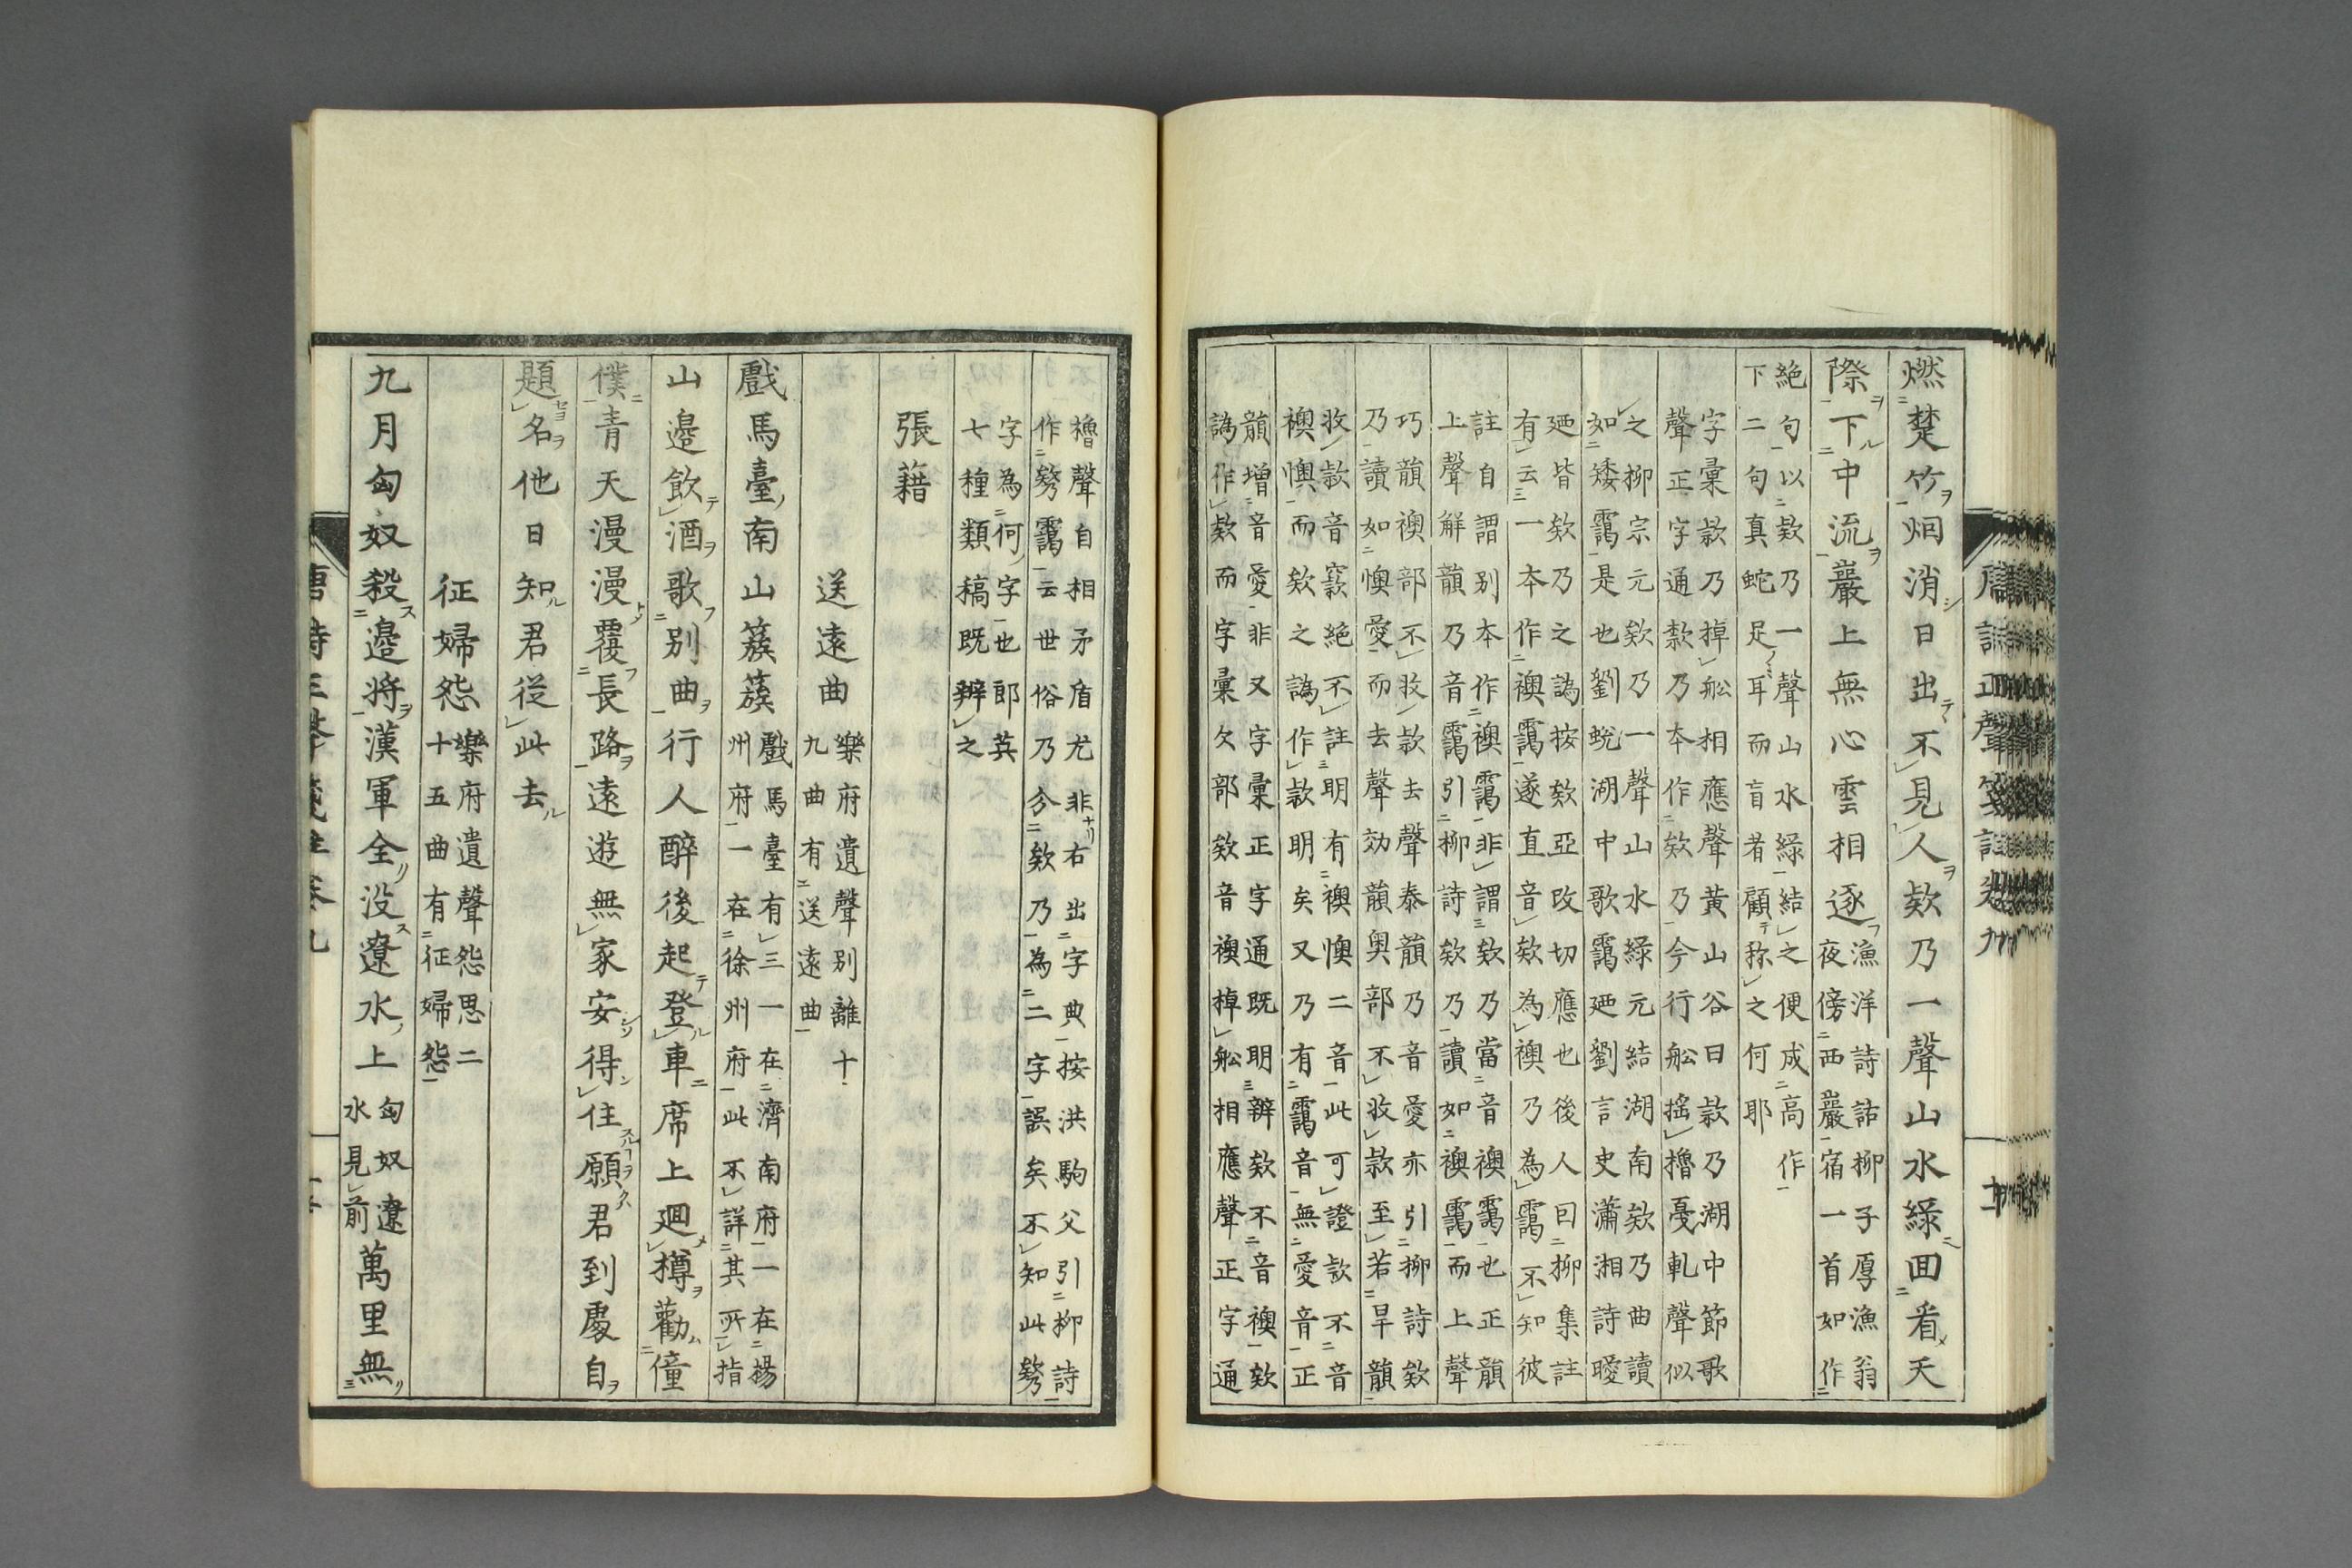 唐詩正聲箋註卷九
燃楚竹烟消日出不見人欸乃一聲山水綠囬看天
際下中流巖上無心雲相逐
漁洋詩話柳子厚漁翁
夜傍西巖宿一首如作
絶句以欸乃一聲山水綠結之便成高作
下二句真蛇足耳而盲者顧稱之何耶
字彙欵乃棹舩相應聲黄山谷曰欵乃湖中節歌
聲正字通欵乃本作欸乃今行舩搖櫓戞軋聲似
之柳宗元欸乃一聲山水綠元結湖南欸乃曲讀
如矮靄是也劉蛻湖中歌靄廼劉言史瀟湘詩曖
廼皆欸乃之譌按欸亞改切應也後人因柳集註
有云一本作襖靄遂直音欸為襖乃為靄不知彼
註自謂別本作襖靄非謂欸乃當音襖靄也正韻
上聲解韻乃音靄引柳詩欸乃讀如襖靄而上聲
巧韻襖部不收欵去聲泰韻乃音愛亦引柳詩欸
乃讀如懊愛而去聲効韻奥部不收欵至若旱韻
收欵音窾絶不註明有襖懊二音此可證欵不音
襖懊而欸之譌作欵明矣又乃有靄音無愛音正
韻增音愛非又字彙正字通既明辨欸不音襖欸
譌作欵而字彙欠部欸音襖棹舩相應聲正字通
櫓聲自相矛盾尤非右出字典按洪駒父引柳詩
作靄云世俗乃分欸乃為二字誤矣不知此
字為何字也郎英
七種類稿既辨之
張籍
送遠曲
樂府遺聲別離十
九曲有送遠曲
戲馬臺南山簇簇
戲馬臺有三一在濟南府一在揚
州府一在徐州府此不詳其所指
山邊飲酒歌別曲行人醉後起登車席上廻樽勸僮
僕青天漫漫覆長路遠遊無家安得住願君到處自
題名他日知君從此去
征婦怨
樂府遺聲怨思二
十五曲有征婦怨
九月匈奴殺邊將漢軍全没遼水上
匈奴遼
水見前
萬里無